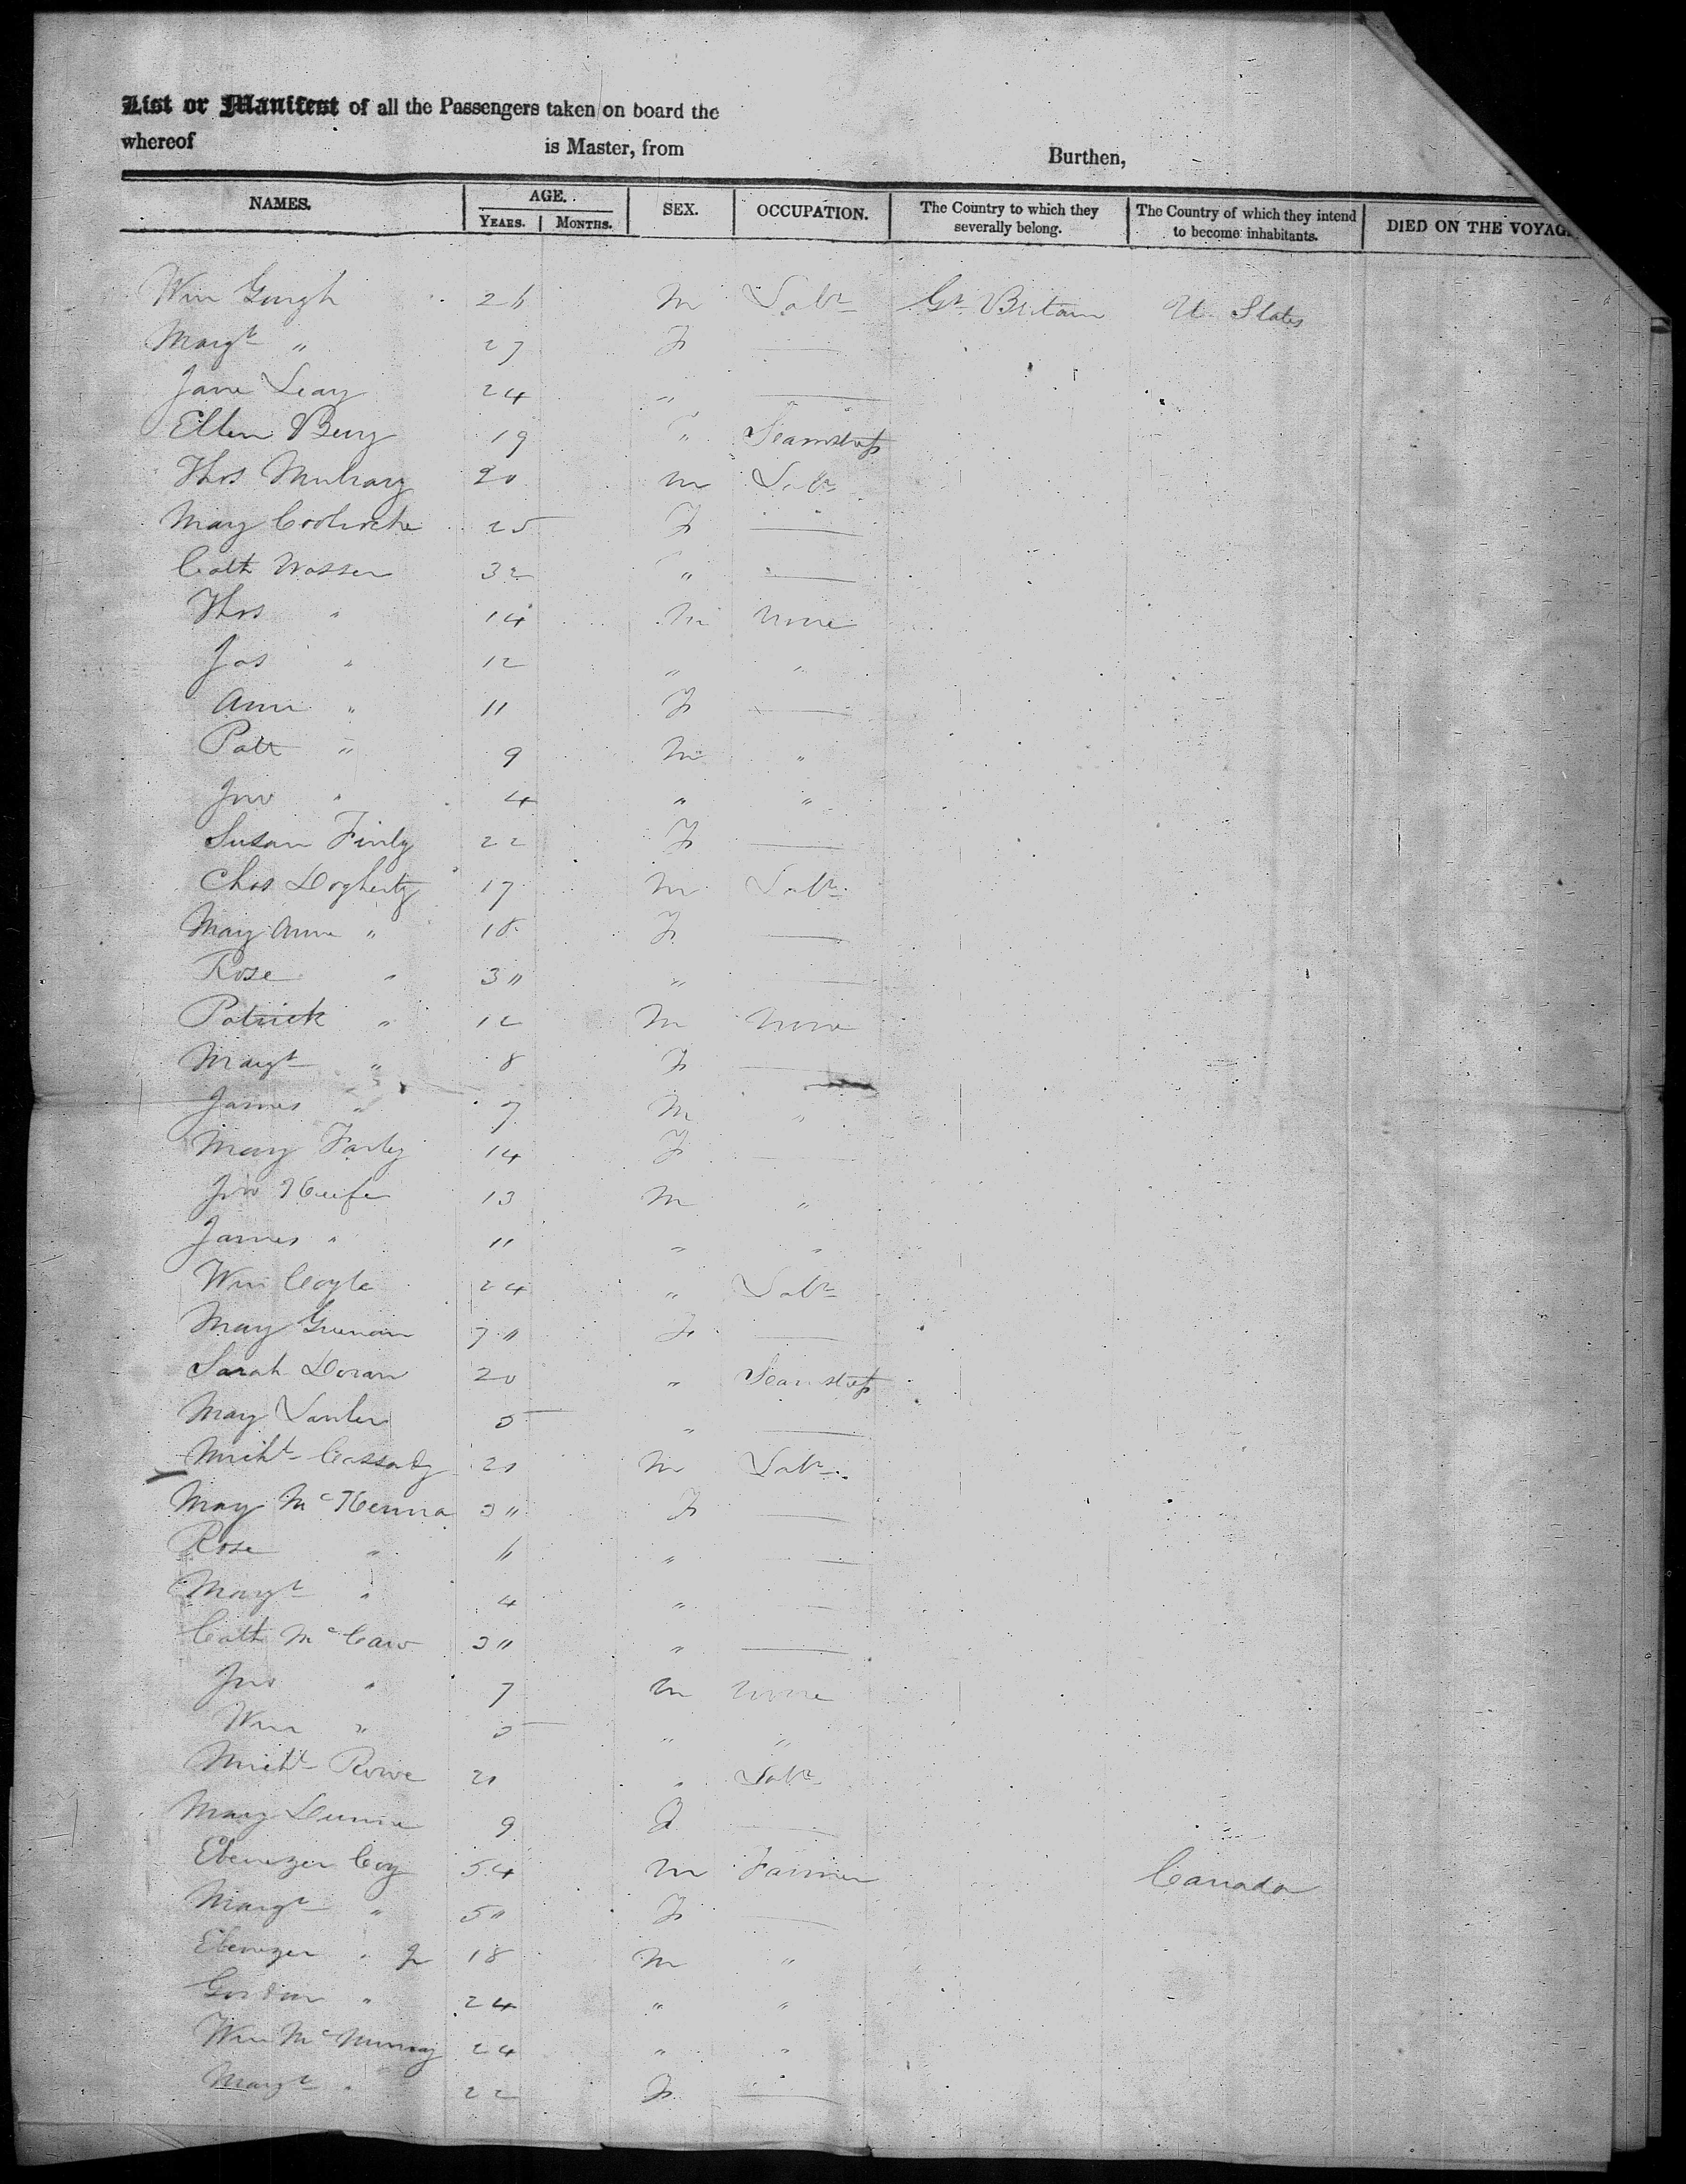 List or Manifest of all the Passengers taken on board the
whereof is Master, from Burthen,
NAMES. AGE. SEX. OCCUPATION. The Country to which they severally belong. The Country of which they intend to become inhabitants. DIED ON THE VOYAG
YEARS. MONTHS.
Wm Gough 26 M Labr Gt. Britain U. States
Margt " 27 F —
Jane Leary 24 " —
Ellen Berry 19 " Seamstress
Thos 20 M Labr
Mary 25 F —
Cath 32 " —
Thos " 14 M None
Jas " 12 " "
Ann " 11 F —
Patt " 9 M "
Jno " 4 " "
Susan Finly 22 F —
Chas Dogherty 17 M Labr
Mary Ann " 18 F —
Rose " 30 " —
Patrick " 12 M None
Margt " 8 F —
James " 7 M "
Mary Farly 14 F —
Jno Keefe 13 M "
James " 11 " "
Wm Coyle 24 " Labr
Mary F —
Sarah Doran 20 " Seamstress
Mary 5 " —
Michl Cassady 21 M Labr
Mary McKenna 30 F —
Rose " 6 " —
Margt " 4 " —
Cath McCaw 30 " —
Jno " 7 M None
Wm " 5 " "
Michl Rowe 21 " Labr
Mary Dunne 9 F —
Ebenezer Coy 54 M Farmer Canada
Margt " 50 F —
Ebenezer " Jr 18 M "
Gordon " 24 " "
Wm McMurray 24 " "
Margt " 22 F —